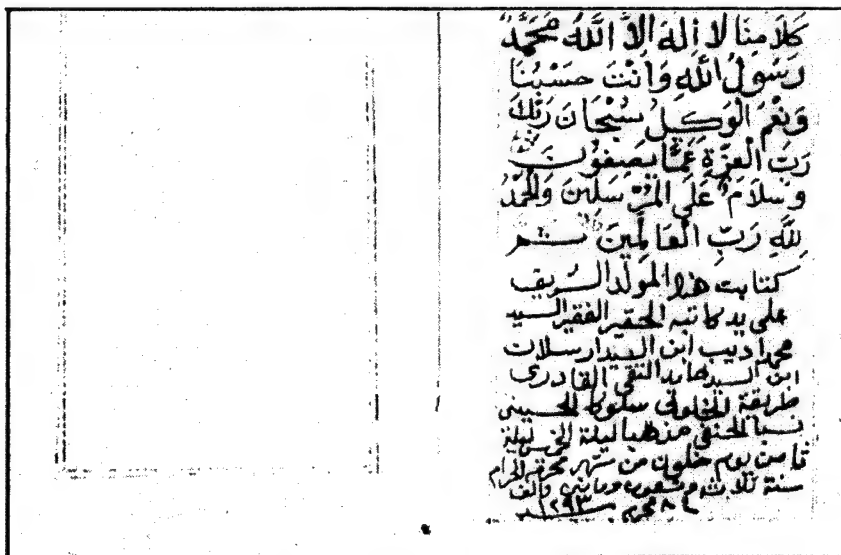 كَلَامِنَا لَا إِلَهَ إِلَّا اللَّهُ مُحَمَّدٌ
رَسُولُ اللَّهِ وَأَنْتَ حَسْبُنَا
وَنِعْمَ الْوَكِيلُ سُبْحَانَ رَبِّكَ
رَبِّ الْعِزَّةِ عَمَّا يَصِفُونَ
وَسَلَامٌ عَلَى الْمُرْسَلِينَ وَالْحَمْدُ
لِلَّهِ رَبِّ الْعَالَمِينَ
كتابت هذا المولد الشريف
على يد كاتبه الحقير الفقير السيد
محمد اديب ابن السيد ارسلان
ابن السيد حامد التقي القادري
طريقة الخلوتي سلوكا الحسيني
نسبا الحنفي مذهبا ليلة الخميس ليلة
ثامن يوم خلون من شهر محرم الحرام
سنة ثلاث وتسعون وماتين والف
٨ محرم سنة ١٢٩٣